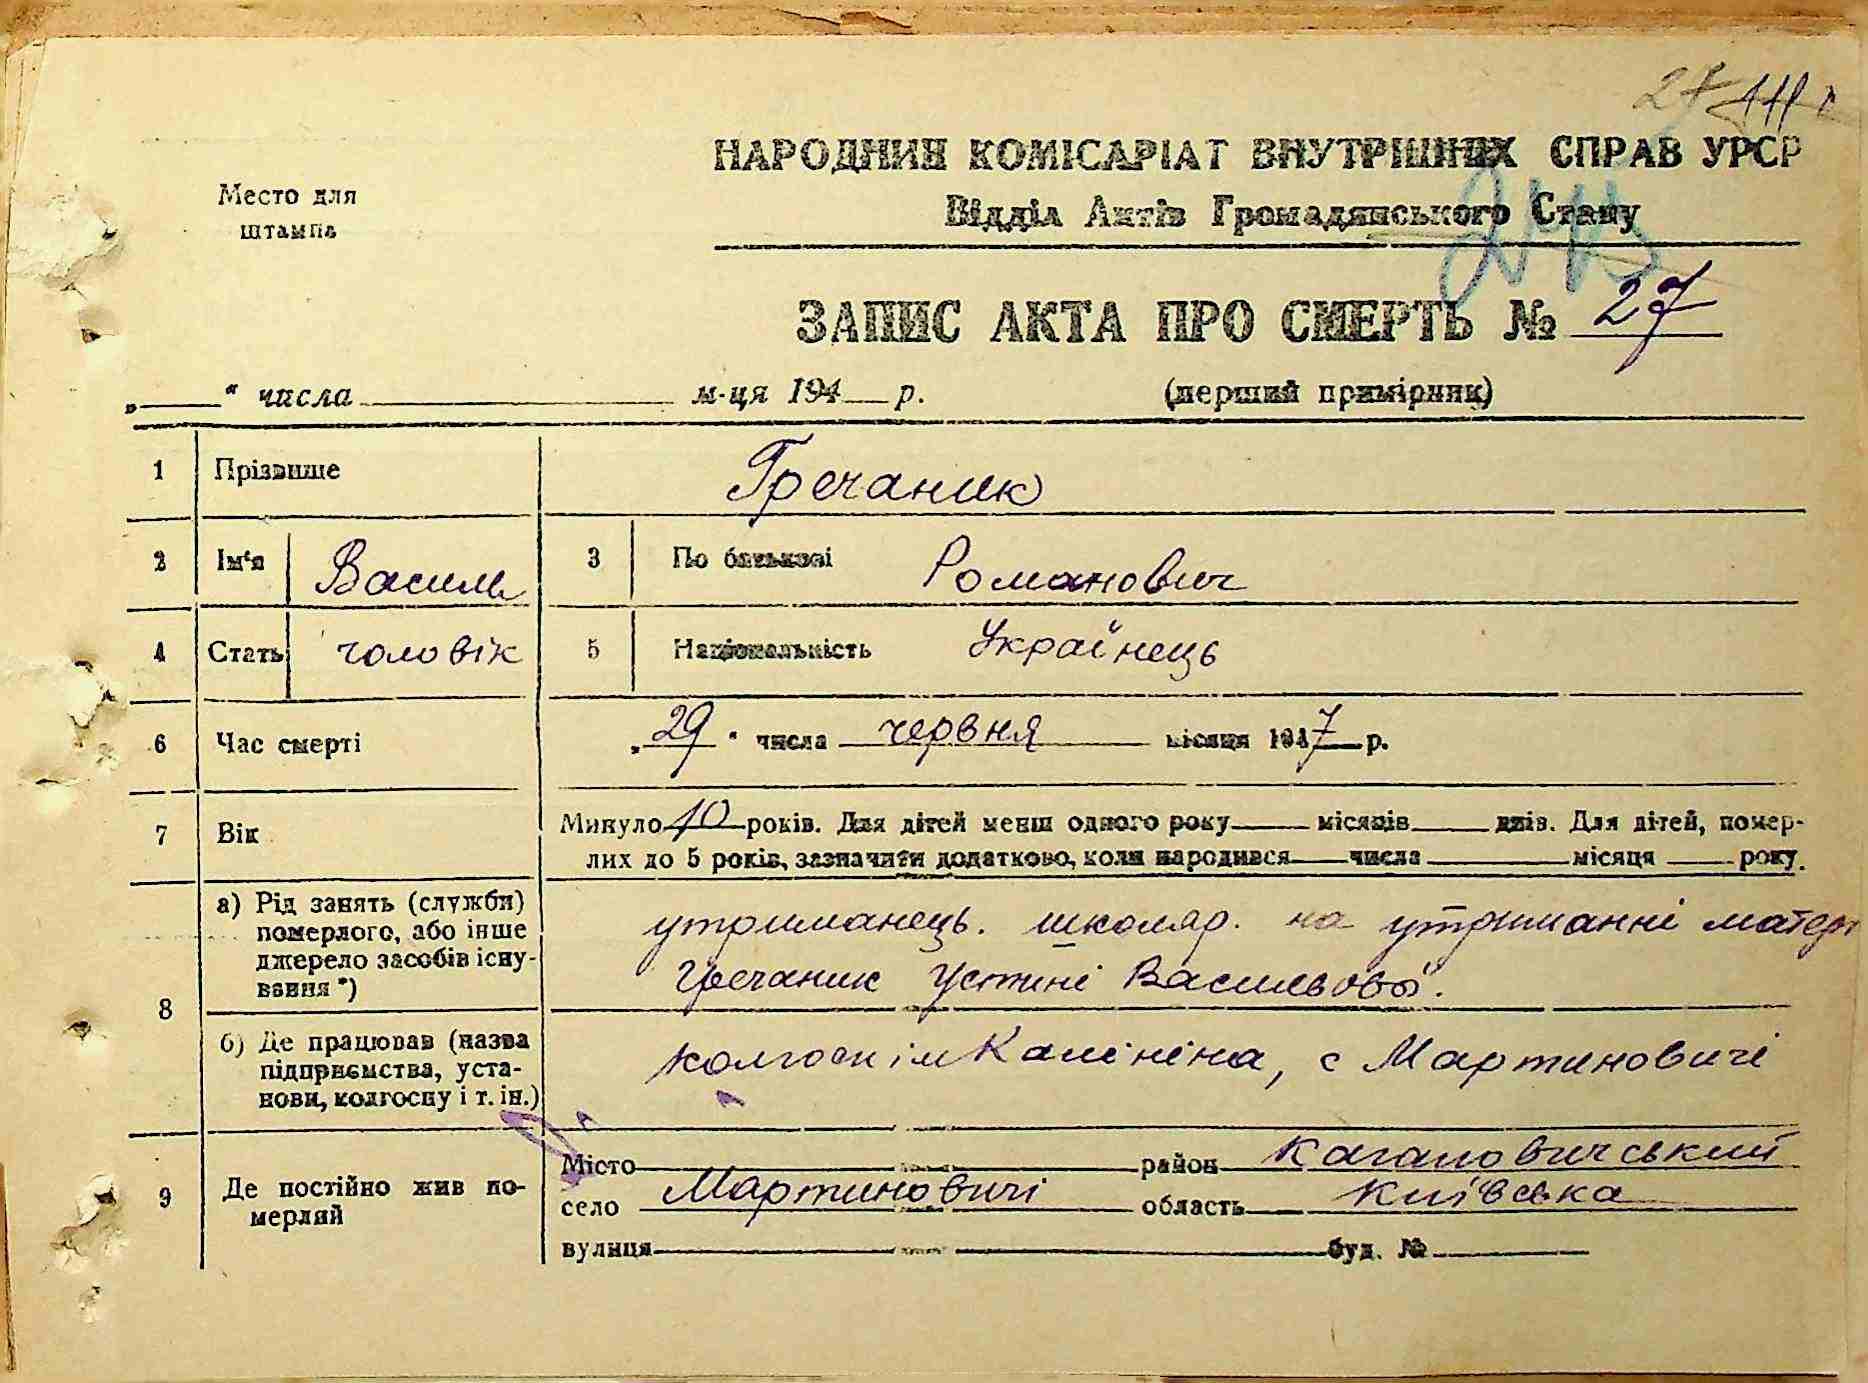 27
НАРОДНИЙ КОМІСАРІАТ ВНУТРІШНІХ СПРАВ УРСР
Место для
штампа
Відділ Актів Громадянського Стану
ЗАПИС АКТА ПРО СМЕРТЬ № 27
„ “ числа м-ця 194 р. (перший примірник)
1 Прізвище Гречаник
2 Ім'я Василь 3 По батькові Романович
4 Стать чоловік 5 Національність Українець
6 Час смерті „29“ числа червня місяця 1947 р.
7 Вік Минуло 10 років. Для дітей менш одного року місяців днів. Для дітей, помер-
лих до 5 років, зазначити додатково, коли народився числа місяця року.
8 а) Рід занять (служби)
померлого, або інше
джерело засобів існу-
вання *)
утриманець. школяр. на утриманні матері
Гречаник Устині Васильової.
б) Де працював (назва
підприємства, уста-
нови, колгоспу і т. ін.)
колгосп ім Калініна, с Мартиновичі
9 Де постійно жив по-
мерлий
Місто район Кагановичський
село Мартиновичі область Київська
вулиця буд. №